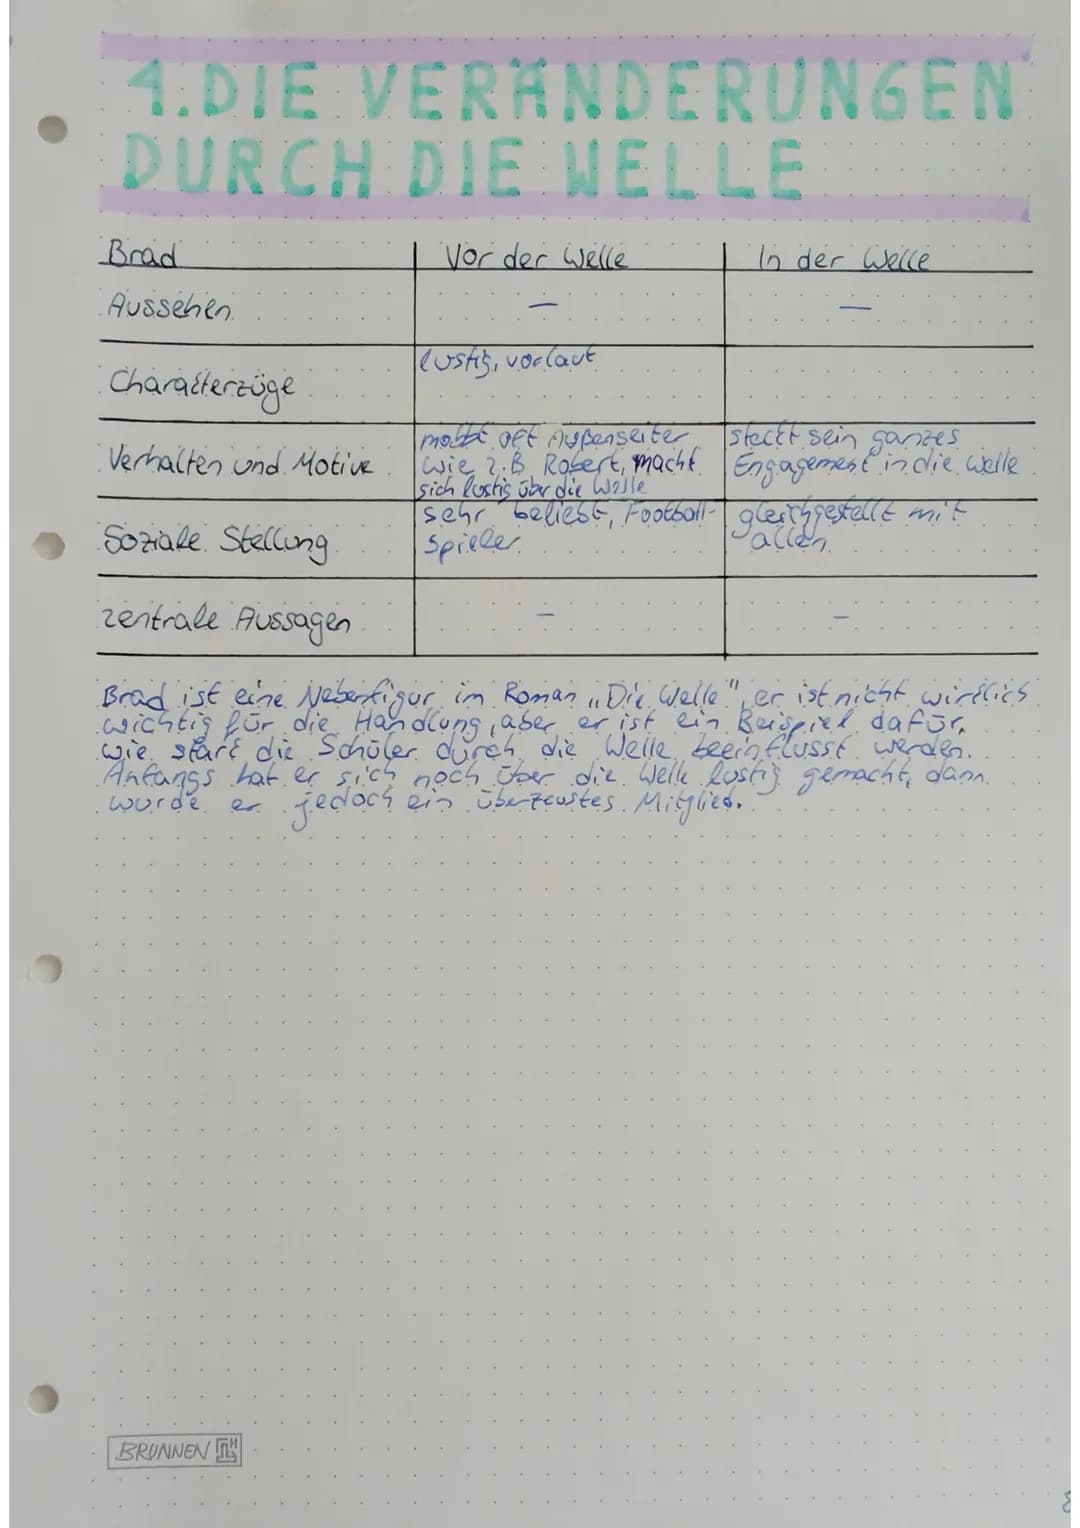 4. DIE VERÄNDERUNGEN
DURCH DIE WELLE
Brad
Vor der Welle
In der Welle
Aussehen
–
–
Charakterzüge
lustig, vorlaut
Verhalten und Motive
mobbt oft Außenseiter
wie z.B. Robert, macht
sich lustig über die Welle
steckt sein ganzes
Engagement in die Welle
Soziale Stellung
sehr beliebt, Football-
spieler
gleichgestellt mit
allen
zentrale Aussagen
-
-
Brad ist eine Nebenfigur im Roman „Die Welle", er ist nicht wirklich
wichtig für die Handlung, aber er ist ein Beispiel dafür,
wie stark die Schüler durch die Welle beeinflusst werden.
Anfangs hat er sich noch über die Welle lustig gemacht, dann
wurde er jedoch ein überzeugtes Mitglied.
BRUNNEN